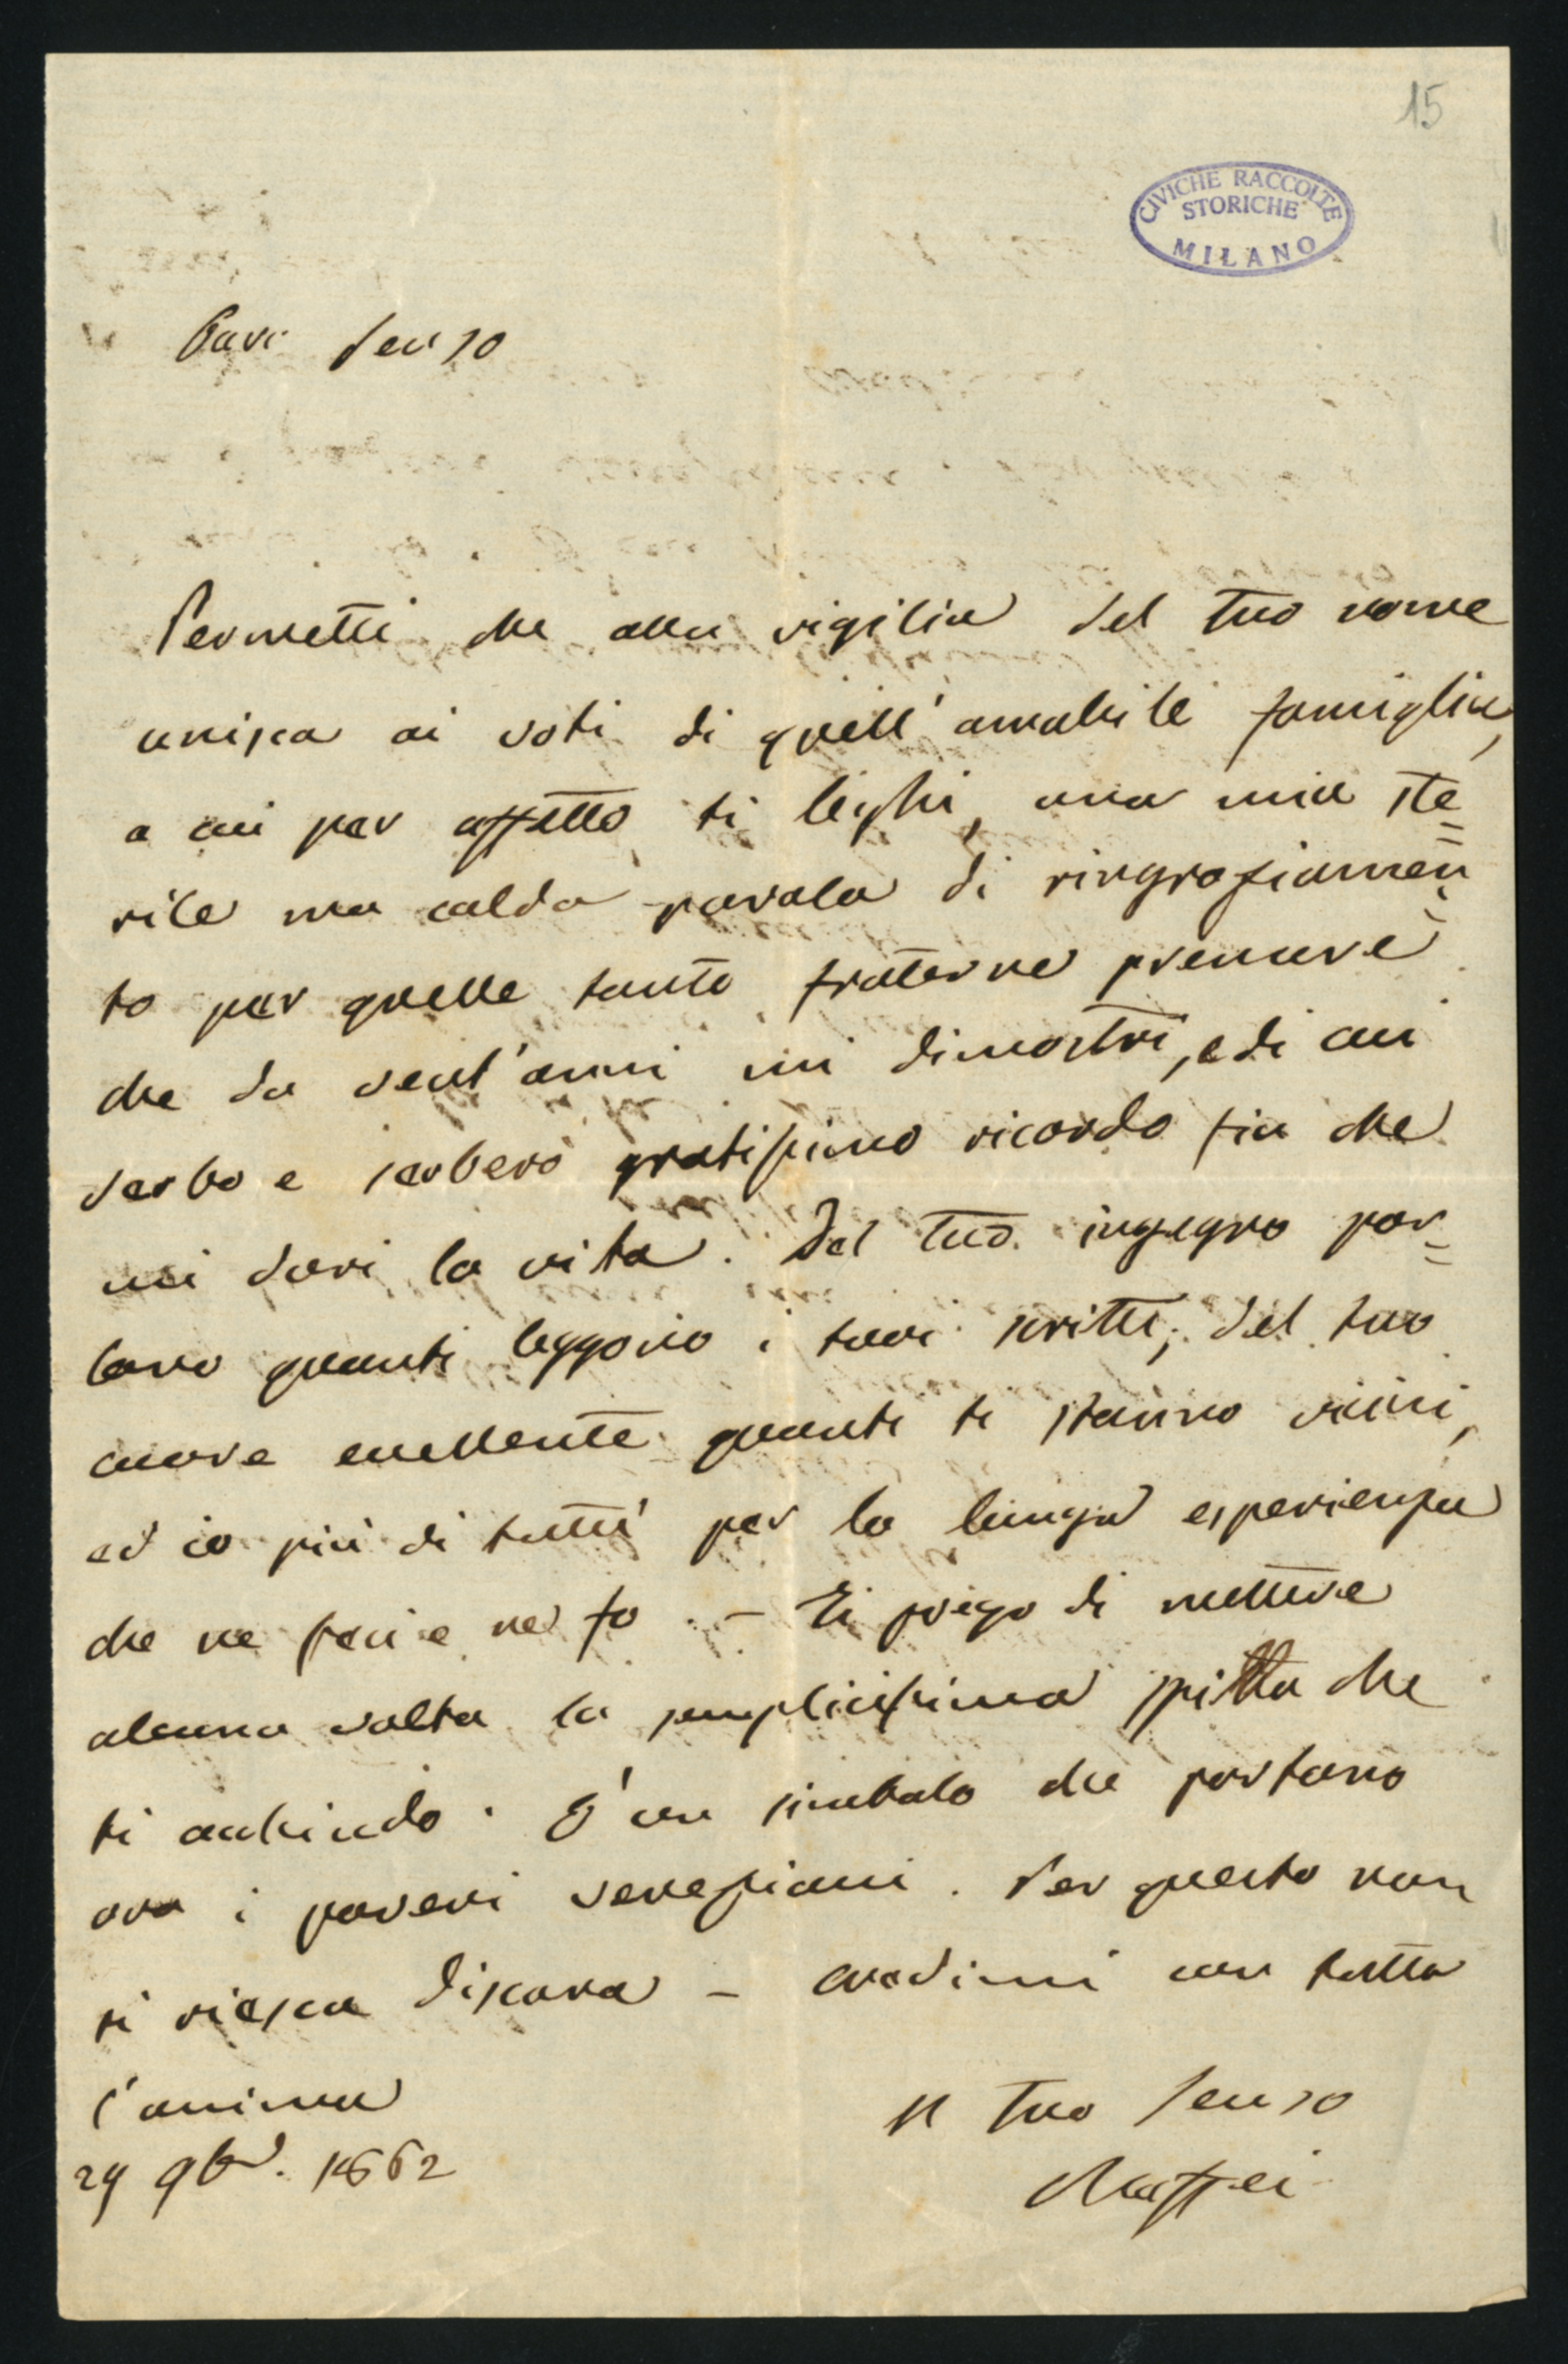 15
CIVICHE RACCOLTE
STORICHE
MILANO
Caro Senzo
Permetti che alla vigilia del tuo nome
unisca ai voti di quell'amabile famiglia,
a cui per affetto ti leghi, una mia ste=
rile ma calda parola di ringraziamen=
to per quelle tante fraterne premure
che da vent'anni mi dimostri, e di cui
serbo e serberò gratissimo ricordo fin che
mi duri la vita. Del tuo ingegno par=
lano quanti leggono i tuoi scritti; del tuo
cuore eccellente quanti ti stanno vicini,
ed io più di tutti per la lunga esperienza
che ne feci e ne fo. – Ti prego di mettere
alcuna volta la semplicissima spilla che
ti acchiudo. È un simbolo che portano
ora i poveri veneziani. Per questo non
ti riesca discara – credimi con tutta
l'anima
Il tuo Senzo
Maffei
29 9br. 1862